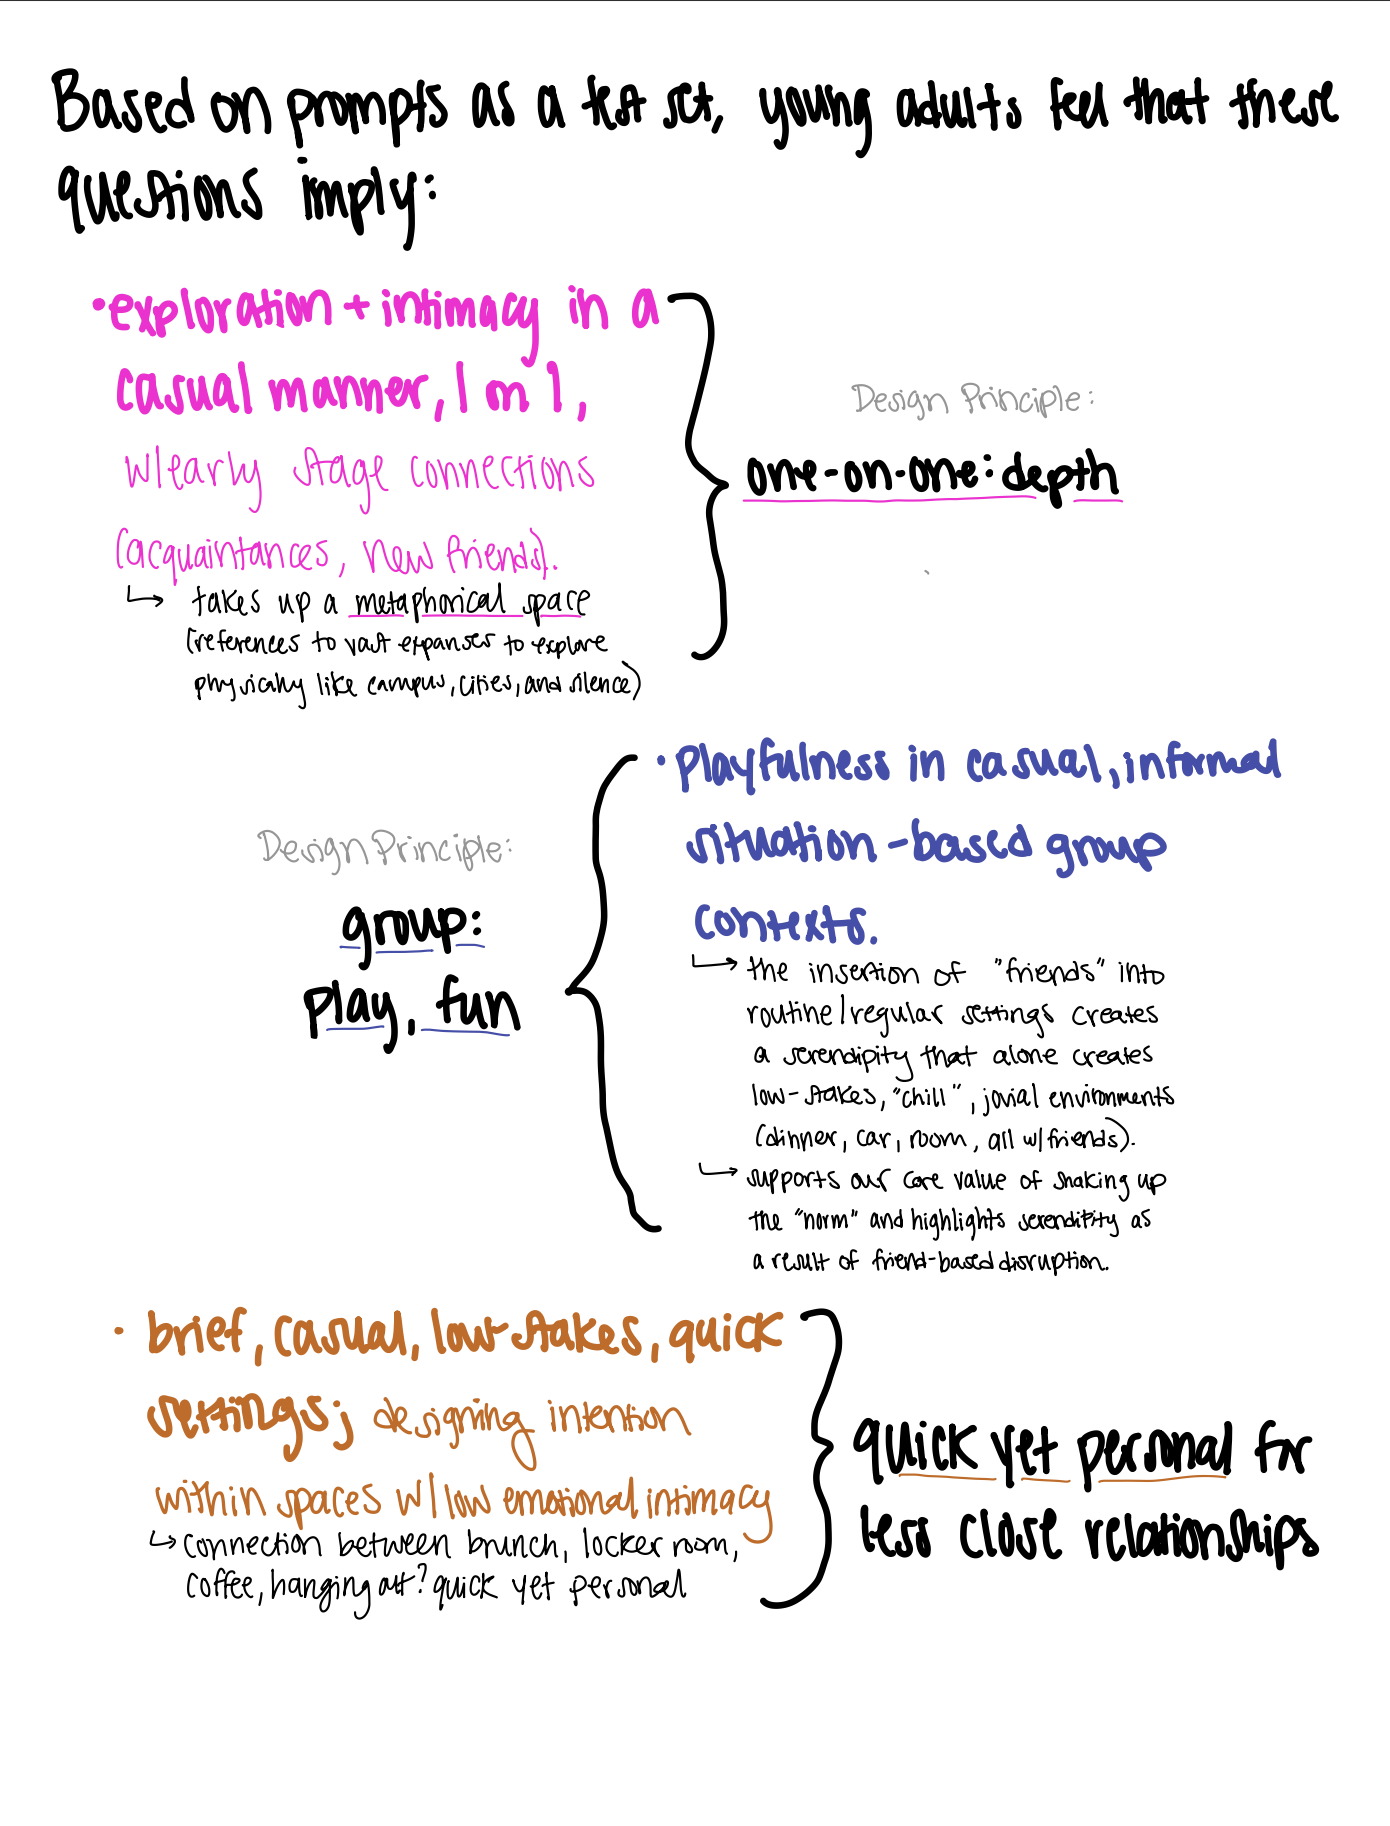 Based on prompts as a test set, young adults feel that these
questions imply:
• exploration + intimacy in a
casual manner, 1 on 1,
w/early stage connections
(acquaintances, new friends).
↳ takes up a metaphorical space
(references to vast expanses to explore
physically like campus, cities, and silence)
Design Principle:
one-on-one: depth
• playfulness in casual, informal
situation-based group
contexts.
↳ the insertion of "friends" into
routine/regular settings creates
a serendipity that alone creates
low-stakes, "chill", jovial environments
(dinner, car, room, all w/friends).
↳ supports our core value of shaking up
the "norm" and highlights serendipity as
a result of friend-based disruption.
Design Principle:
group:
play, fun
• brief, casual, low-stakes, quick
settings; designing intention
within spaces w/low emotional intimacy
↳ connection between brunch, locker room,
coffee, hanging out? quick yet personal
quick yet personal for
less close relationships